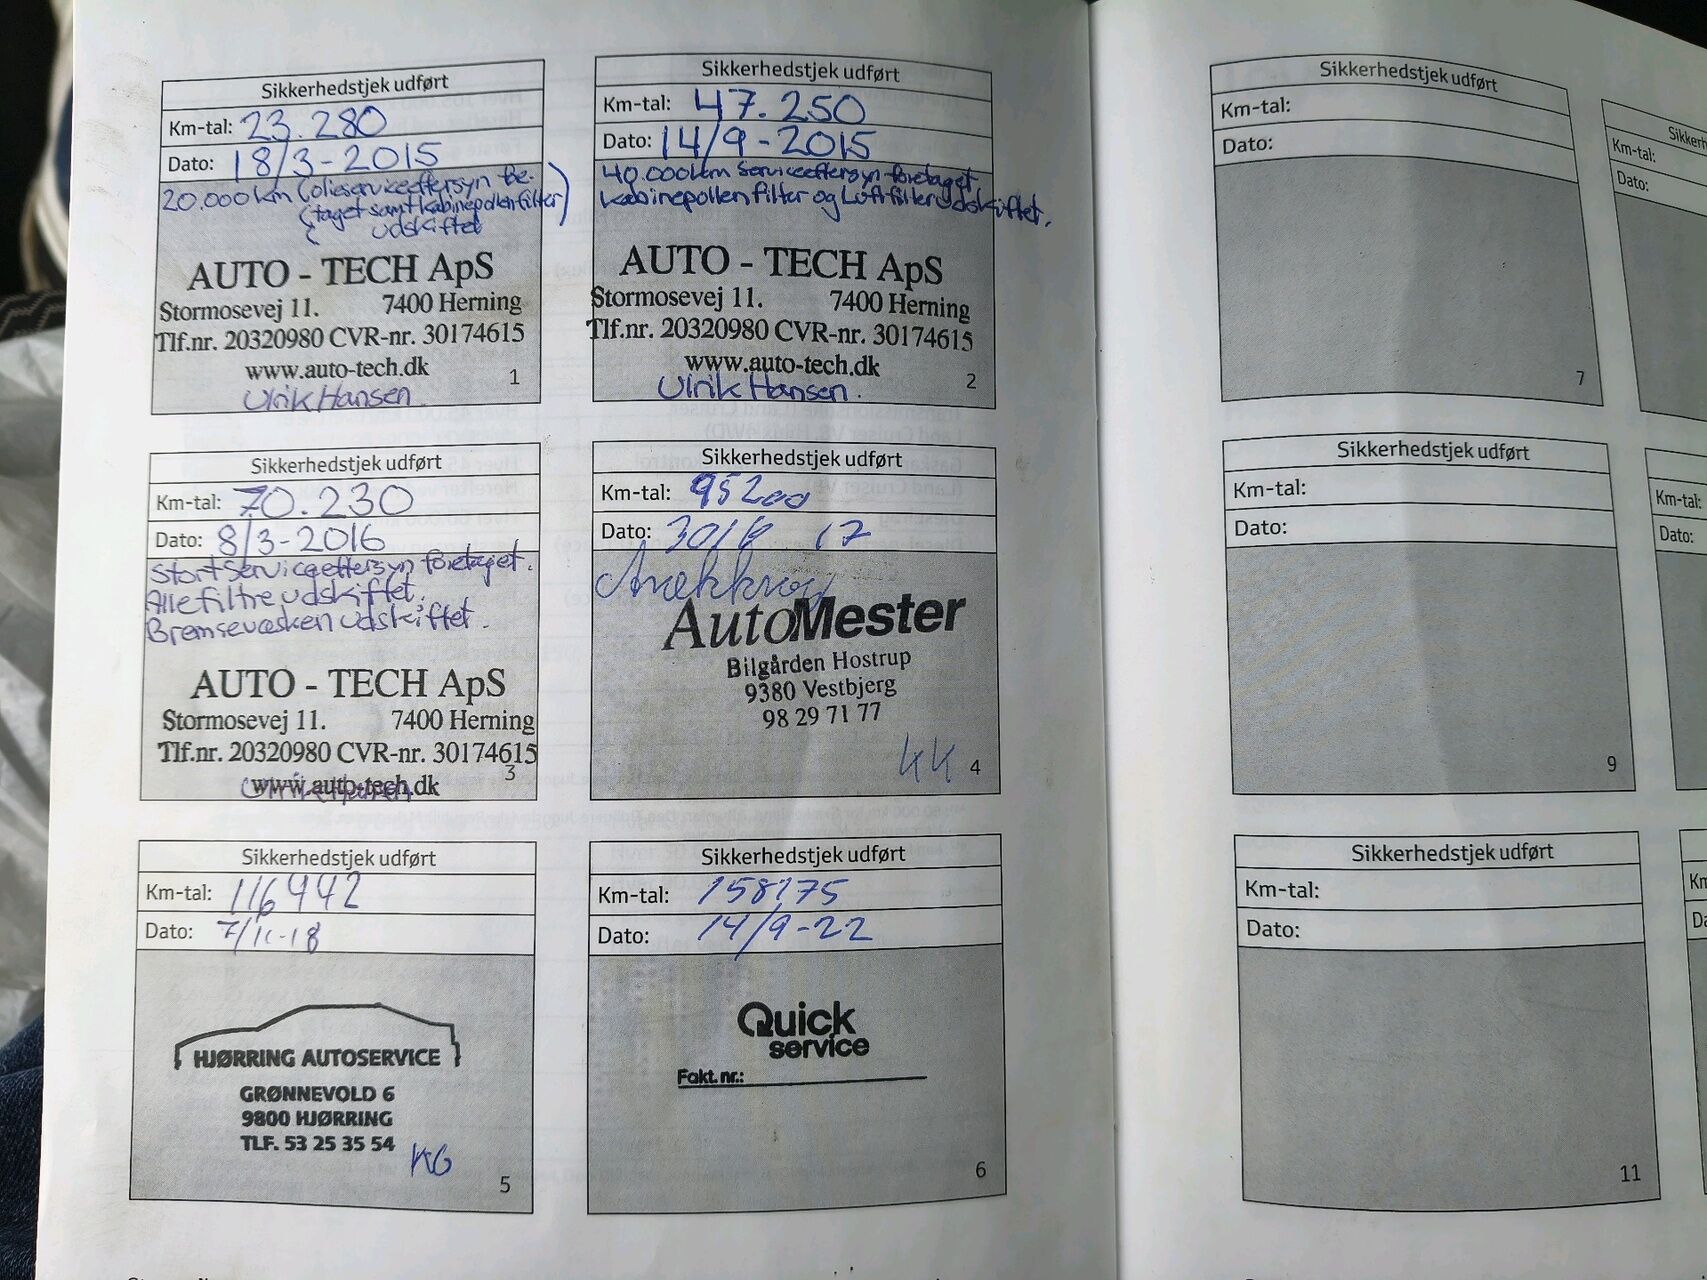 Sikkerhedstjek udført
Km-tal: 23.280
Dato: 18/3-2015
20.000km (olieserviceeftersyn fore-
taget samt kabinepollenfilter)
udskiftet
AUTO - TECH ApS
Stormosevej 11. 7400 Herning
Tlf.nr. 20320980 CVR-nr. 30174615
www.auto-tech.dk
Ulrik Hansen
1
Sikkerhedstjek udført
Km-tal: 47.250
Dato: 14/9-2015
40.000km serviceeftersyn foretaget,
kabinepollenfilter og Luftfilter udskiftet.
AUTO - TECH ApS
Stormosevej 11. 7400 Herning
Tlf.nr. 20320980 CVR-nr. 30174615
www.auto-tech.dk
Ulrik Hansen.
2
Sikkerhedstjek udført
Km-tal: 70.230
Dato: 8/3-2016
stort serviceeftersyn foretaget.
Alle filtre udskiftet.
Bremsevæsken udskiftet.
AUTO - TECH ApS
Stormosevej 11. 7400 Herning
Tlf.nr. 20320980 CVR-nr. 30174615
www.auto-tech.dk
3
Sikkerhedstjek udført
Km-tal: 95200
Dato: 17
AutoMester
Bilgården Hostrup
9380 Vestbjerg
98 29 71 77
KK
4
Sikkerhedstjek udført
Km-tal: 116942
Dato: 7/11-18
HJØRRING AUTOSERVICE
GRØNNEVOLD 6
9800 HJØRRING
TLF. 53 25 35 54
KG
5
Sikkerhedstjek udført
Km-tal: 158175
Dato: 14/9-22
Quick
service
Fakt. nr.:
6
Sikkerhedstjek udført
Km-tal:
Dato:
7
Sikkerhedstjek udført
Km-tal:
Dato:
9
Sikkerhedstjek udført
Km-tal:
Dato:
11
Km-tal:
Dato:
Km-tal:
Dato: